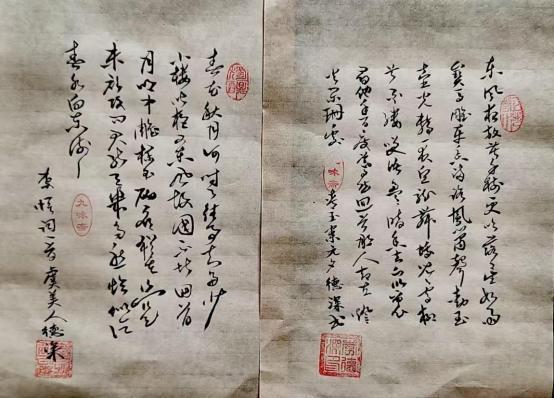 东风夜放花千树更吹落星如雨
宝马雕车香满路凤箫声动玉
壶光转一夜鱼龙舞蛾儿雪柳
黄金缕笑语盈盈暗香去众里寻
他千百度蓦然回首那人却在灯
火阑珊处
青玉案元夕德深书
春花秋月何时了往事知多少
小楼昨夜又东风故国不堪回首
月明中雕栏玉砌应犹在只是
朱颜改问君能有几多愁恰似一江
春水向东流
李煜词一首虞美人德深
九味斋